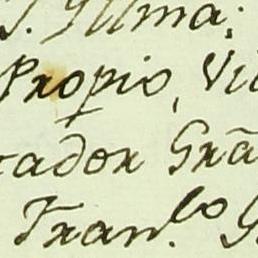 S. Illma;
Propio, Vi
cador Grã
Fran.co G